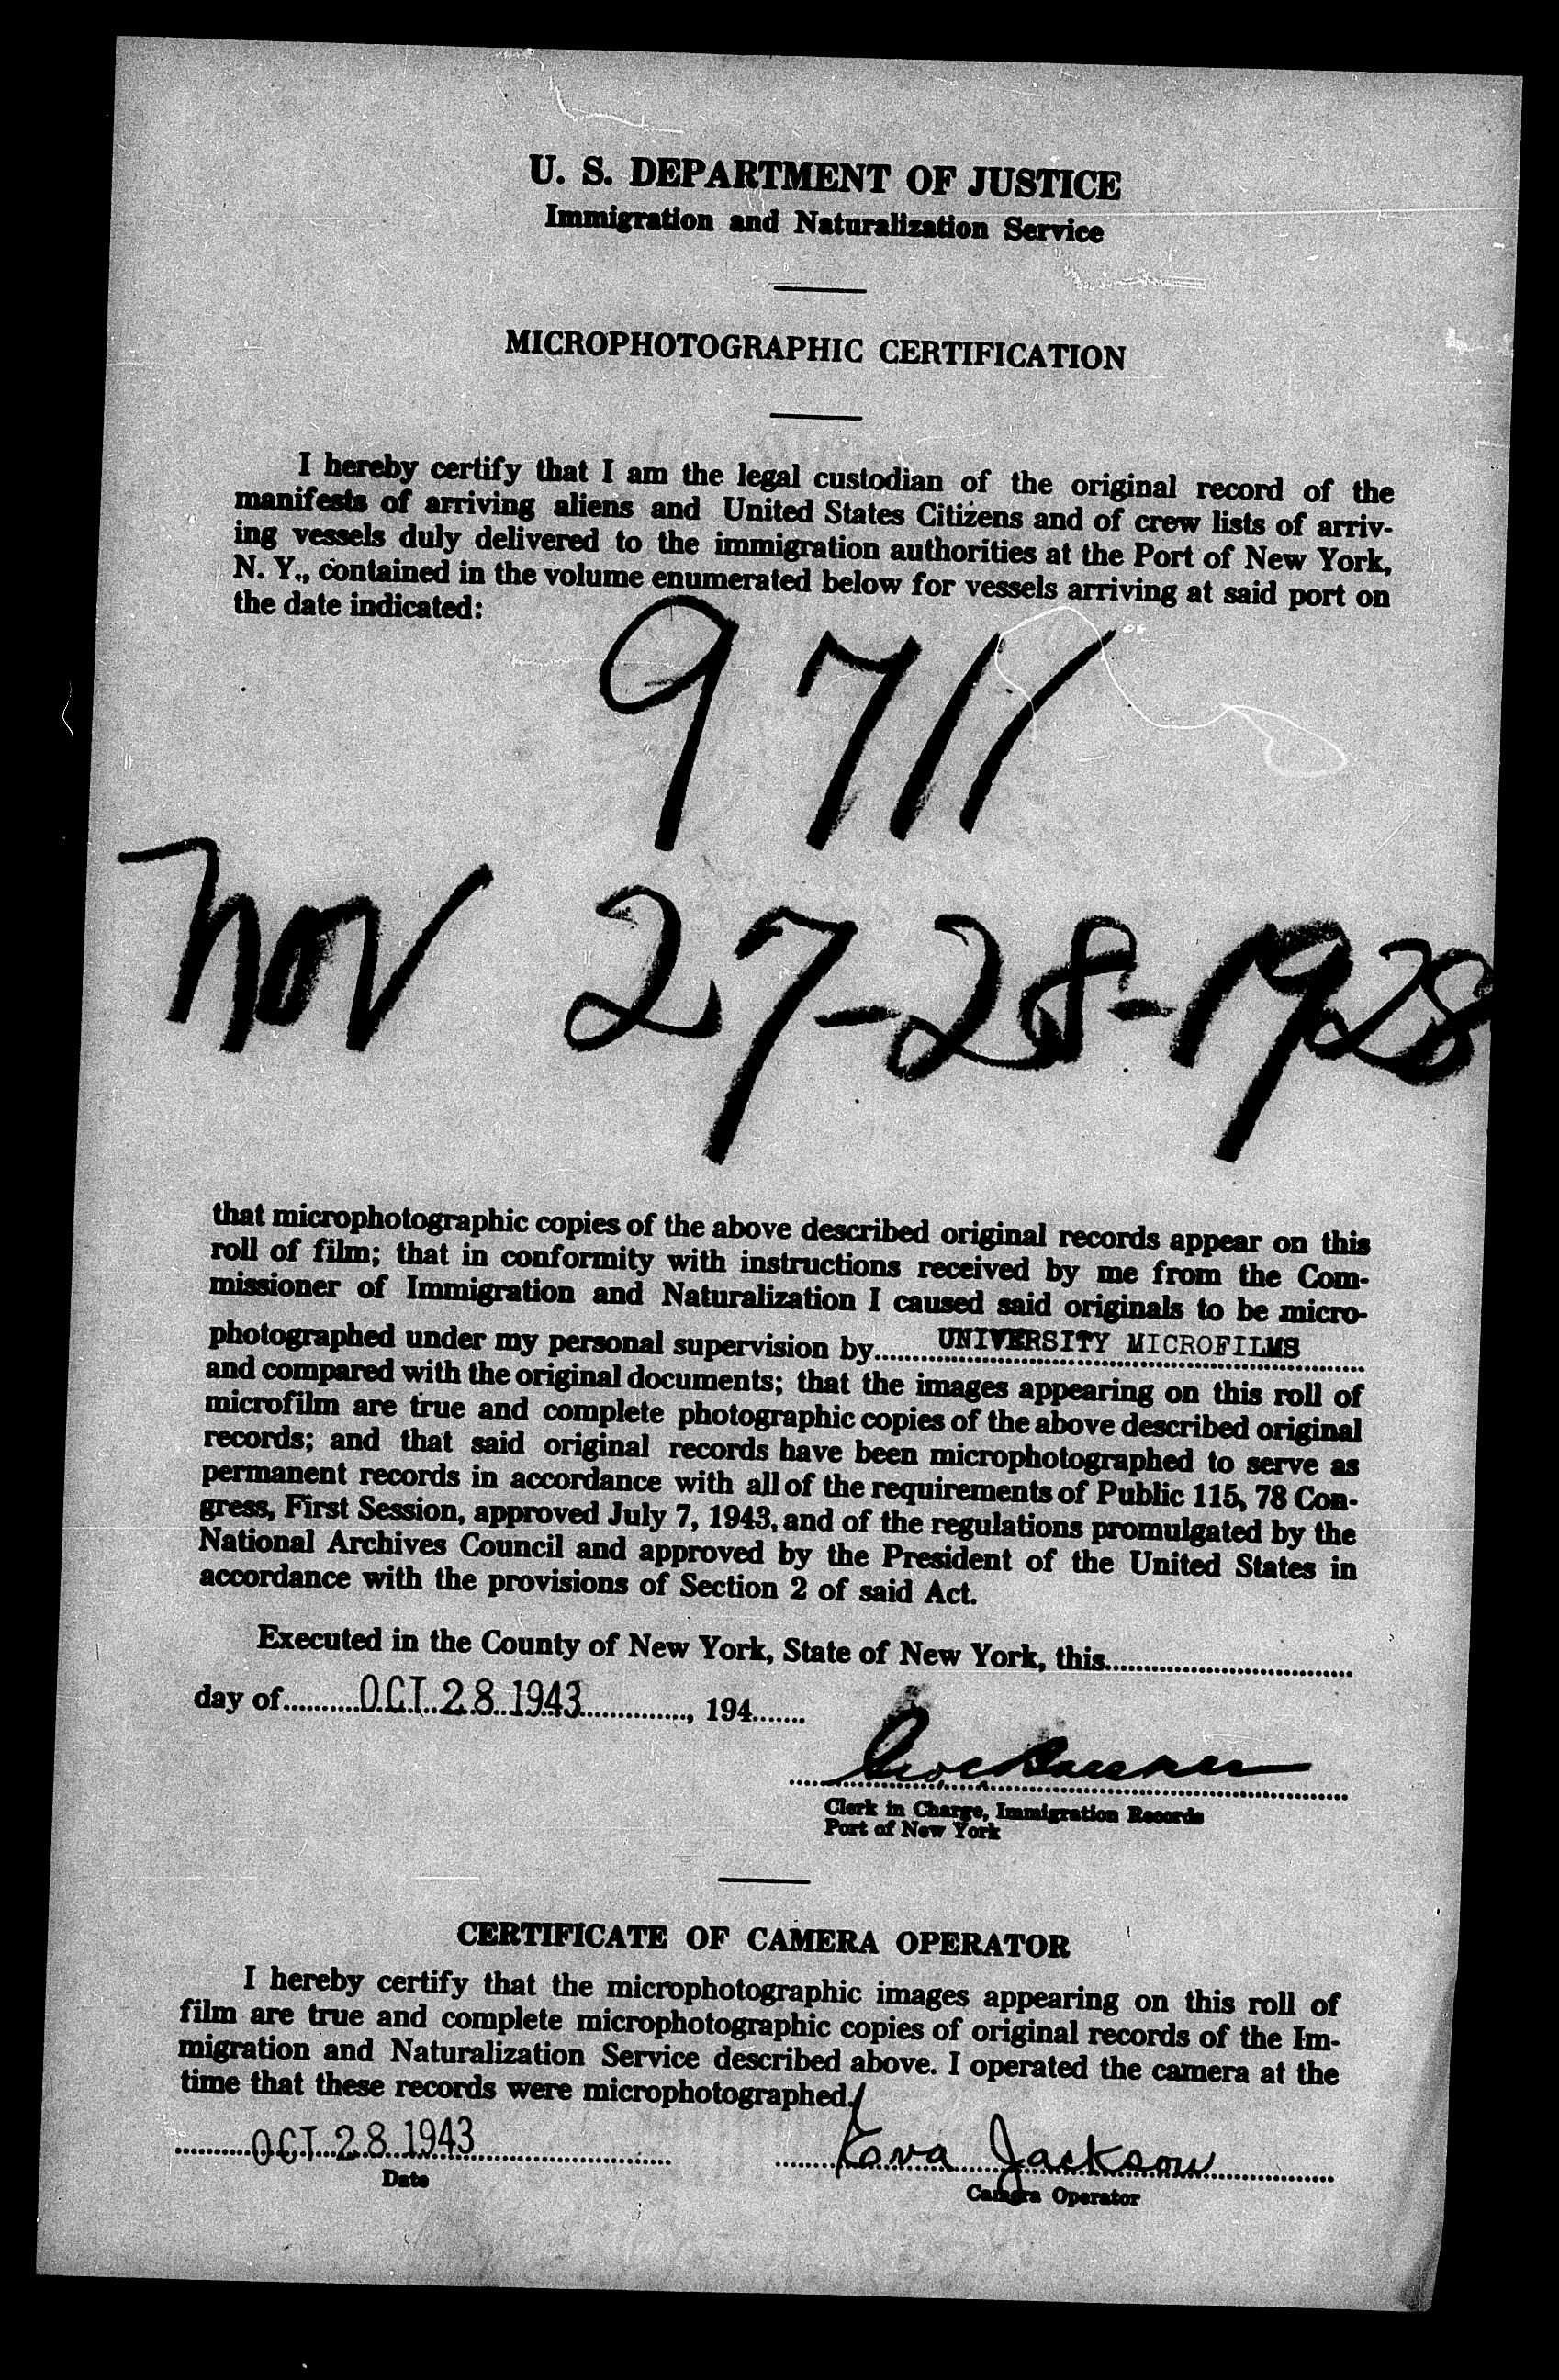 U. S. DEPARTMENT OF JUSTICE
Immigration and Naturalization Service
MICROPHOTOGRAPHIC CERTIFICATION
I hereby certify that I am the legal custodian of the original record of the
manifests of arriving aliens and United States Citizens and of crew lists of arriv-
ing vessels duly delivered to the immigration authorities at the Port of New York,
N. Y., contained in the volume enumerated below for vessels arriving at said port on
the date indicated:
9711
Nov 27-28-1928
that microphotographic copies of the above described original records appear on this
roll of film; that in conformity with instructions received by me from the Com-
missioner of Immigration and Naturalization I caused said originals to be micro-
photographed under my personal supervision by UNIVERSITY MICROFILMS
and compared with the original documents; that the images appearing on this roll of
microfilm are true and complete photographic copies of the above described original
records; and that said original records have been microphotographed to serve as
permanent records in accordance with all of the requirements of Public 115, 78 Con-
gress, First Session, approved July 7, 1943, and of the regulations promulgated by the
National Archives Council and approved by the President of the United States in
accordance with the provisions of Section 2 of said Act.
Executed in the County of New York, State of New York, this
day of OCT 28 1943, 194
Clerk in Charge, Immigration Records
Port of New York
CERTIFICATE OF CAMERA OPERATOR
I hereby certify that the microphotographic images appearing on this roll of
film are true and complete microphotographic copies of original records of the Im-
migration and Naturalization Service described above. I operated the camera at the
time that these records were microphotographed.
OCT 28 1943 Jackson
Date
Camera Operator